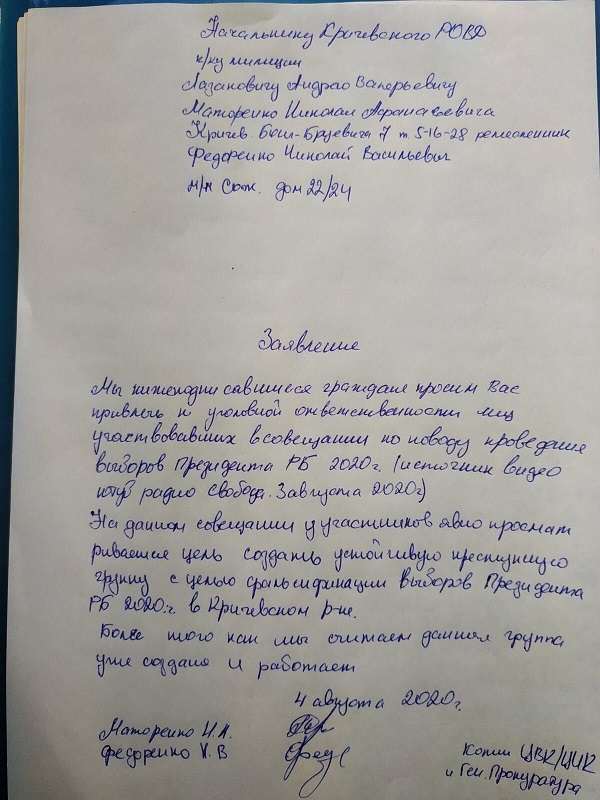 Начальнику Кричевского РОВД
п/ку милиции
Лазановичу Андрею Валерьевичу
Маторенко Николая Афанасьевича
Кричев 7 т. 5-16-28 ремесленник
Федоренко Николай Васильевич
м/н Сож. дом 22/24
Заявление
Мы нижеподписавшиеся граждане просим Вас
привлечь к уголовной ответственности лиц
участвовавших в совещании по поводу проведение
выборов Президента РБ 2020г. (источник видео
ютуб радио Свобода. 3 августа 2020г)
На данном совещании у участников явно просмат
ривается цель создать устойчивую преступную
группу с целью фальсификации выборов Президента
РБ 2020г. в Кричевском р-не.
Более того как мы считаем данная группа
уже создана и работает
4 августа 2020г.
Маторенко Н.А.
Федоренко Н.В
Копии ЦВК/ЦИК
и Ген. Прокуратура